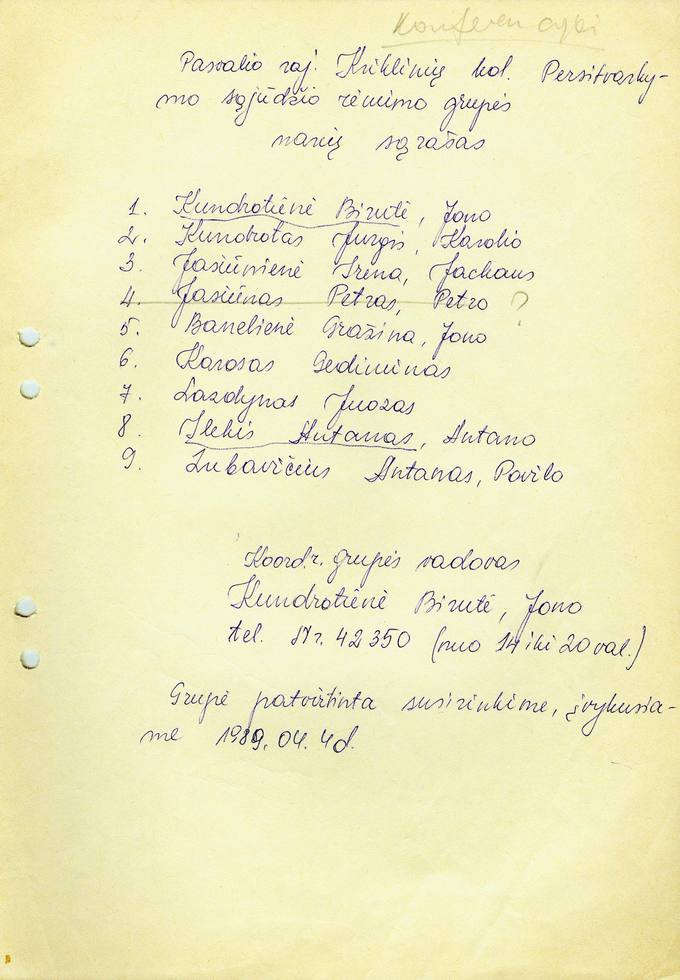 Pasvalio raj. Kriklinių kol. Persitvarky-
mo sąjūdžio rėmimo grupės
narių sąrašas
1. Kundrotienė Birutė, Jono
2. Kundrotas Jurgis, Karolio
3. Jasiūnienė Irena, Jackaus
4. Jasiūnas Petras, Petro ?
5. Banelienė Gražina, Jono
6. Karosas Gediminas
7. Lazdynas Juozas
8. Ilekis Antanas, Antano
9. Lubavičius Antanas, Povilo
Koord. grupės vadovas
Kundrotienė Birutė, Jono
tel. 42350 (nuo 14 iki 20 val.)
Grupė patvirtinta susirinkime, įvykusia-
me 1989.04.4d.